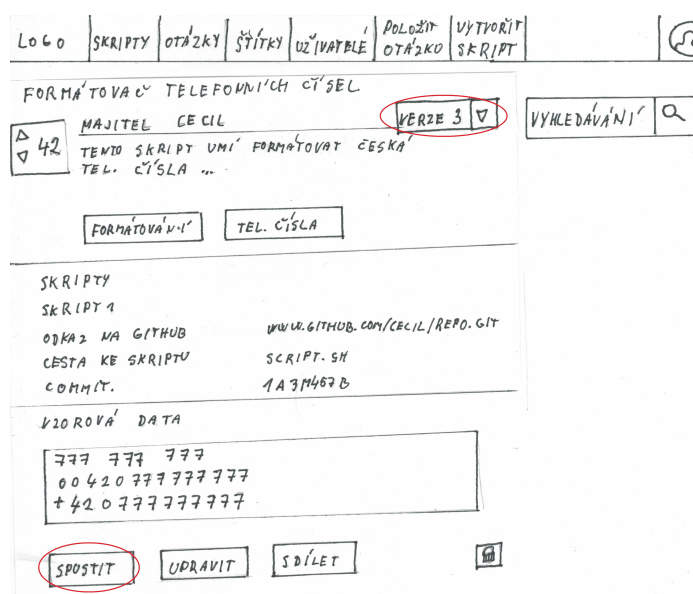 LOGO SKRIPTY OTÁZKY ŠTÍTKY UŽIVATELÉ POLOŽIT OTÁZKU VYTVOŘIT SKRIPT
FORMÁTOVAČ TELEFONNÍCH ČÍSEL
MAJITEL CECIL VERZE 3
VYHLEDÁVÁNÍ
42
TENTO SKRIPT UMÍ FORMÁTOVAT ČESKÁ
TEL. ČÍSLA ...
FORMÁTOVÁNÍ TEL. ČÍSLA
SKRIPTY
SKRIPT 1
ODKAZ NA GITHUB WWW.GITHUB.COM/CECIL/REPO.GIT
CESTA KE SKRIPTU SCRIPT.SH
COMMIT. 1A3M467B
VZOROVÁ DATA
777 777 777
00420777777777
+420777777777
SPUSTIT UPRAVIT SDÍLET